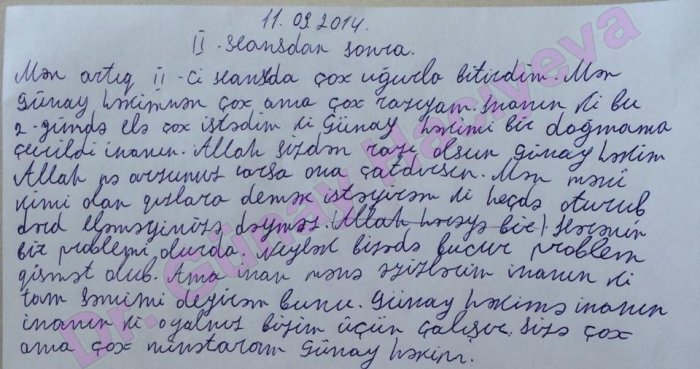 11.09.2014.
II-seansdan sonra.
Mən artıq II-ci seansda çox uğurla bitirdim. Mən
Günay həkimnən çox ama çox razıyam. İnanın ki bu
2-gündə elə çox istədim ki Günay həkimi bir doğmama
çevrildi inanın. Allah sizdən razı olsun Günay həkim
Allah nə arzunuz varsa ona çatdırsın. Mən məni
kimi olan qızlara demək istəyirəm ki heçdə oturub
dərd eləməyinizə dəyməz. Allah hərəyə bir Hərənin
bir problemi olurda. Neylək bizədə bucür problem
qismət olub. Ama inan mənə əzizlərim inanın ki
tam səmimi deyirəm bunu. Günay həkimə inanın
inanın ki o yalnız bizim üçün çalışır. Sizə çox
ama çox minnətaram Günay həkim.
Dr. Günay Hacıyeva